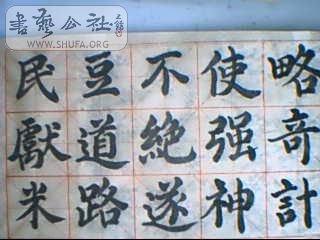 書藝公社
WWW.SHUFA.ORG
略奇計
使强神
不絶遂
豆道路
民獻米